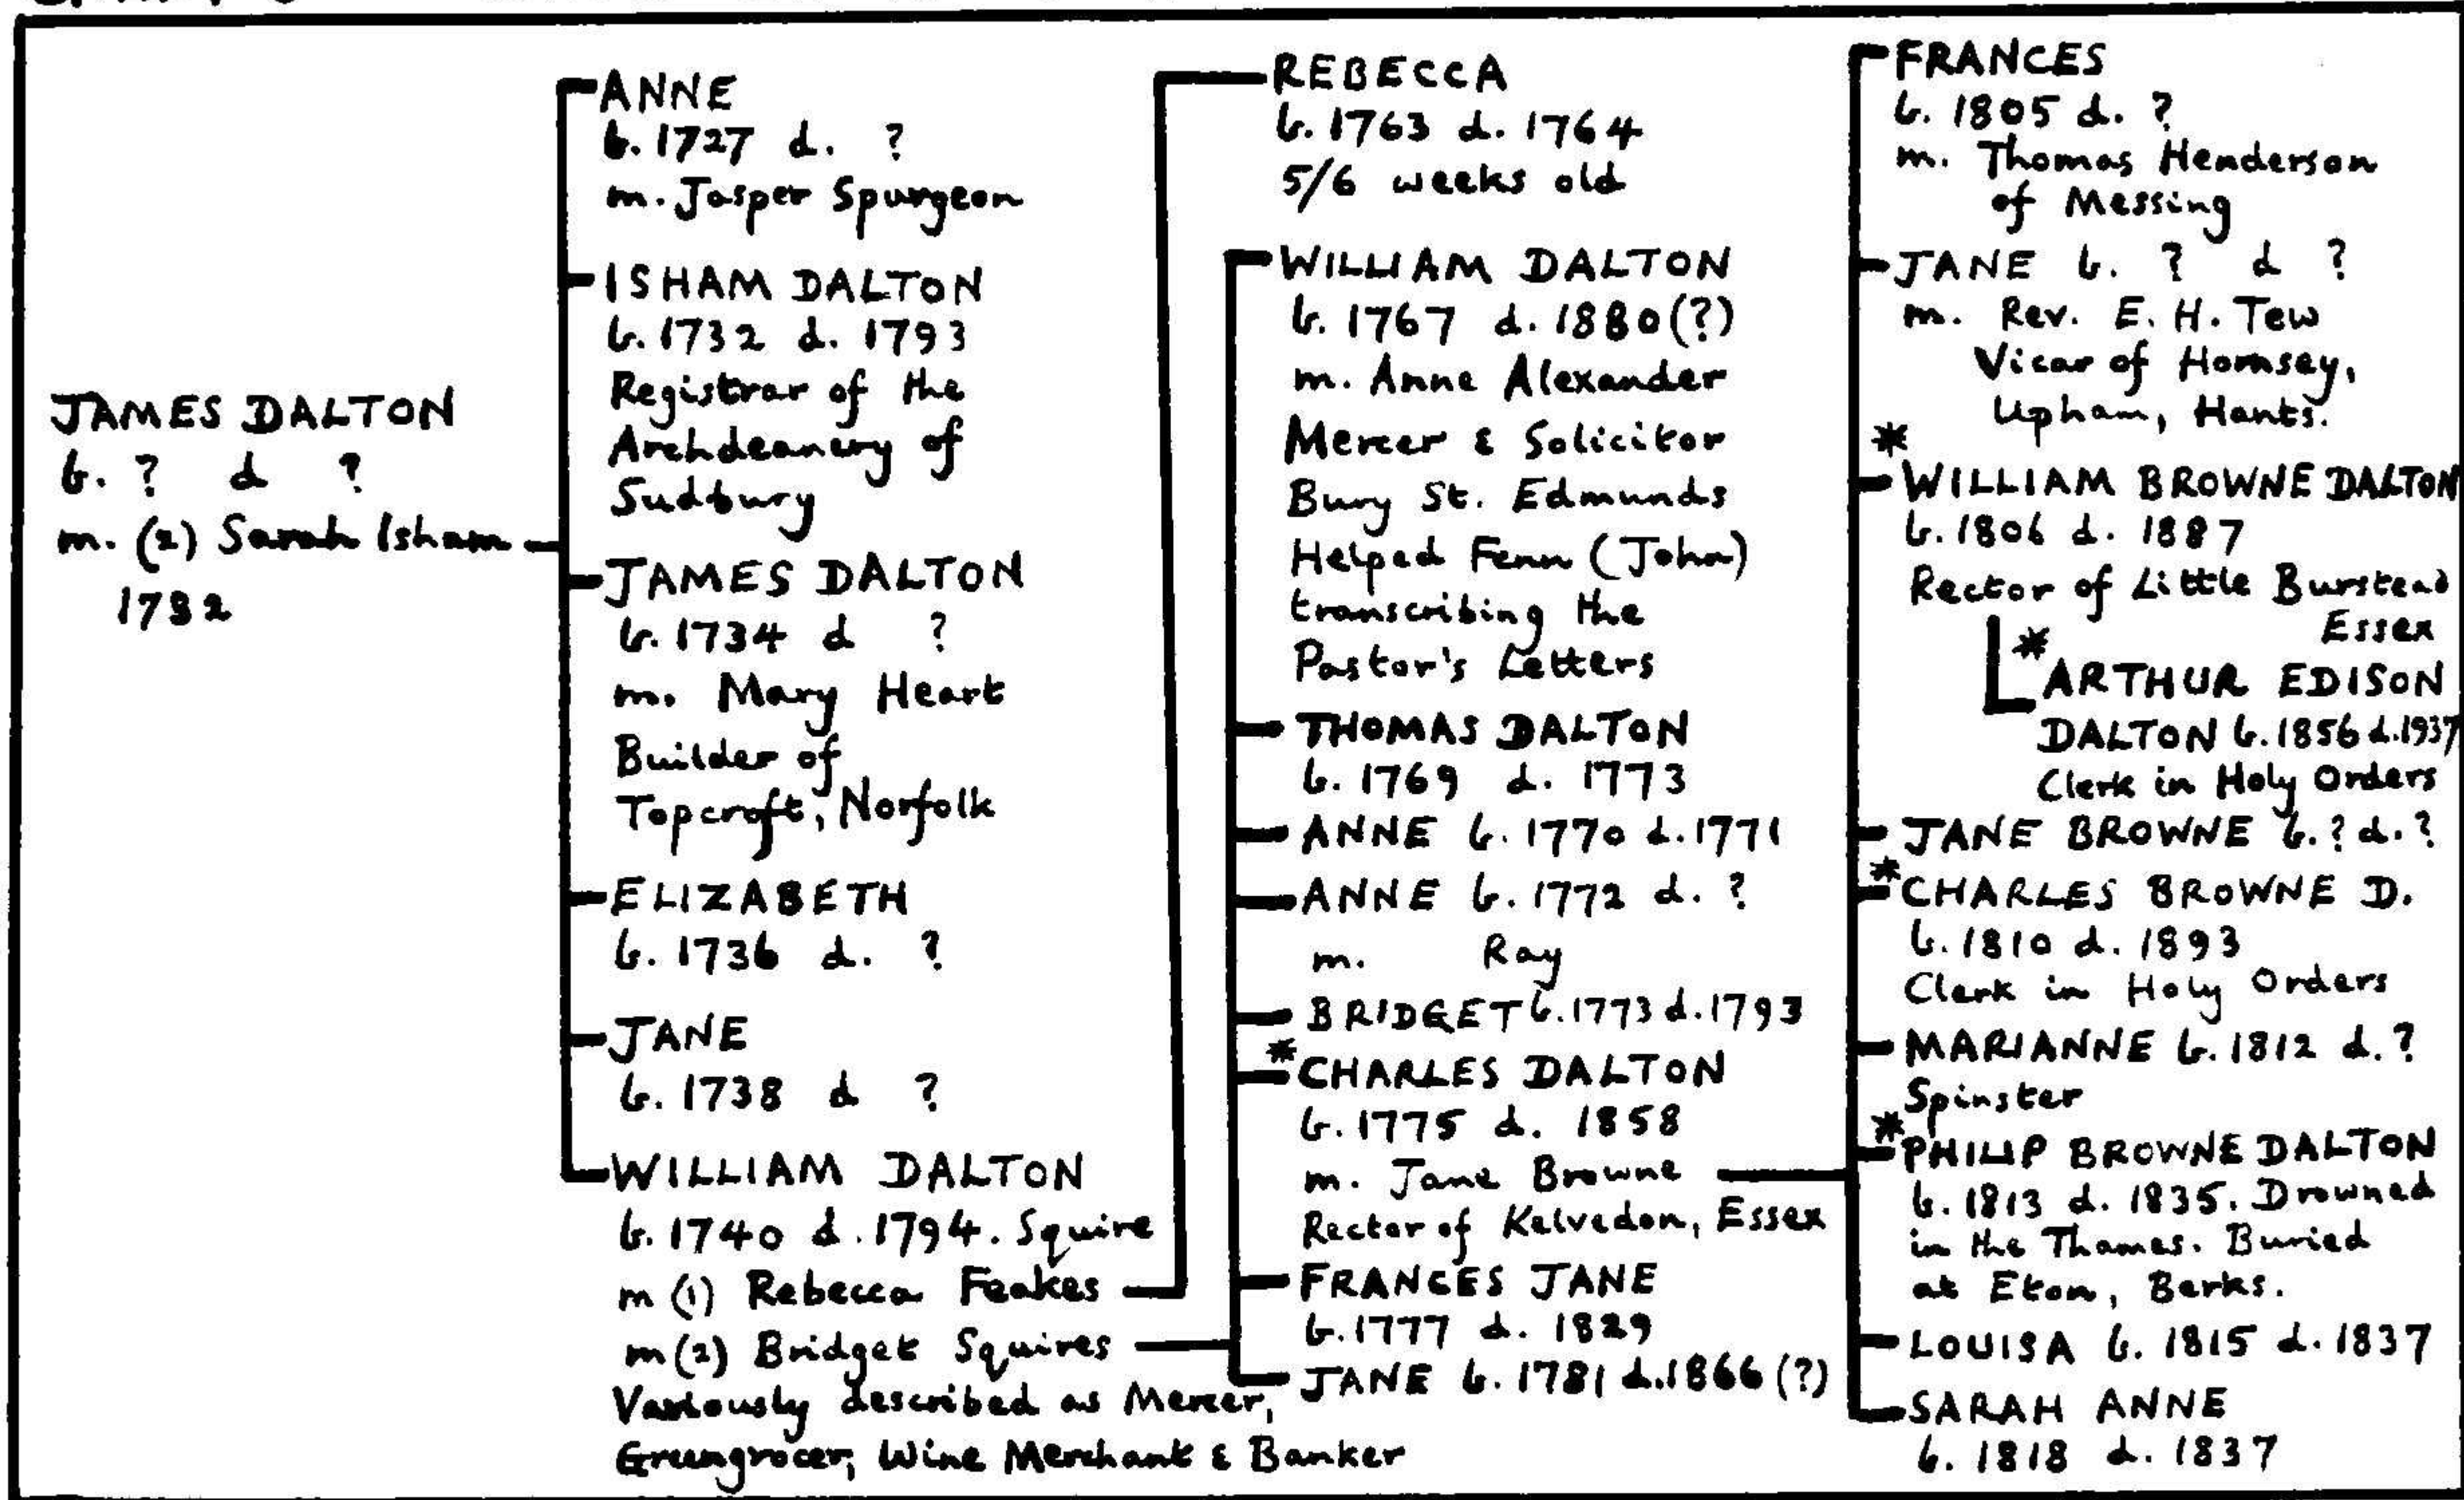 JAMES DALTON
b. ? d ?
m. (2) Sarah Isham
1732
ANNE
b. 1727 d. ?
m. Jasper Spurgeon
ISHAM DALTON
b. 1732 d. 1793
Registrar of the
Archdeanery of
Sudbury
JAMES DALTON
b. 1734 d ?
m. Mary Heart
Builder of
Topcroft, Norfolk
ELIZABETH
b. 1736 d. ?
JANE
b. 1738 d ?
WILLIAM DALTON
b. 1740 d. 1794. Squire
m (1) Rebecca Feakes
m (2) Bridget Squires
Variously described as Mercer,
Greengrocer, Wine Merchant & Banker
REBECCA
b. 1763 d. 1764
5/6 weeks old
WILLIAM DALTON
b. 1767 d. 1880 (?)
m. Anne Alexander
Mercer & Solicitor
Bury St. Edmunds
Helped Fenn (John)
transcribing the
Paston's Letters
THOMAS DALTON
b. 1769 d. 1773
ANNE b. 1770 d. 1771
ANNE b. 1772 d. ?
m. Ray
BRIDGET b. 1773 d. 1793
*CHARLES DALTON
b. 1775 d. 1858
m. Jane Browne
Rector of Kelvedon, Essex
FRANCES JANE
b. 1777 d. 1829
JANE b. 1781 d. 1866 (?)
FRANCES
b. 1805 d. ?
m. Thomas Henderson
of Messing
JANE b. ? d ?
m. Rev. E. H. Tew
Vicar of Hornsey,
Upham, Hants.
*
WILLIAM BROWNE DALTON
b. 1806 d. 1887
Rector of Little Burstead
Essex
*
ARTHUR EDISON
DALTON b. 1856 d. 1937
Clerk in Holy Orders
JANE BROWNE b. ? d. ?
*CHARLES BROWNE D.
b. 1810 d. 1893
Clerk in Holy Orders
MARIANNE b. 1812 d. ?
Spinster
*PHILIP BROWNE DALTON
b. 1813 d. 1835. Drowned
in the Thames. Buried
at Eton, Berks.
LOUISA b. 1815 d. 1837
SARAH ANNE
b. 1818 d. 1837